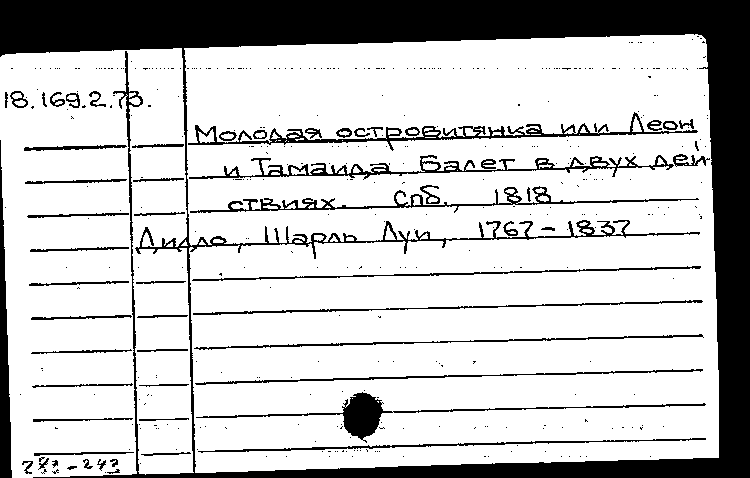 18.169.2.73.
Молодая островитянка или Леон
и Тамаида. Балет в двух дей
ствиях. Спб., 1818.
Дидло, Шарль Луи, 1767-1837